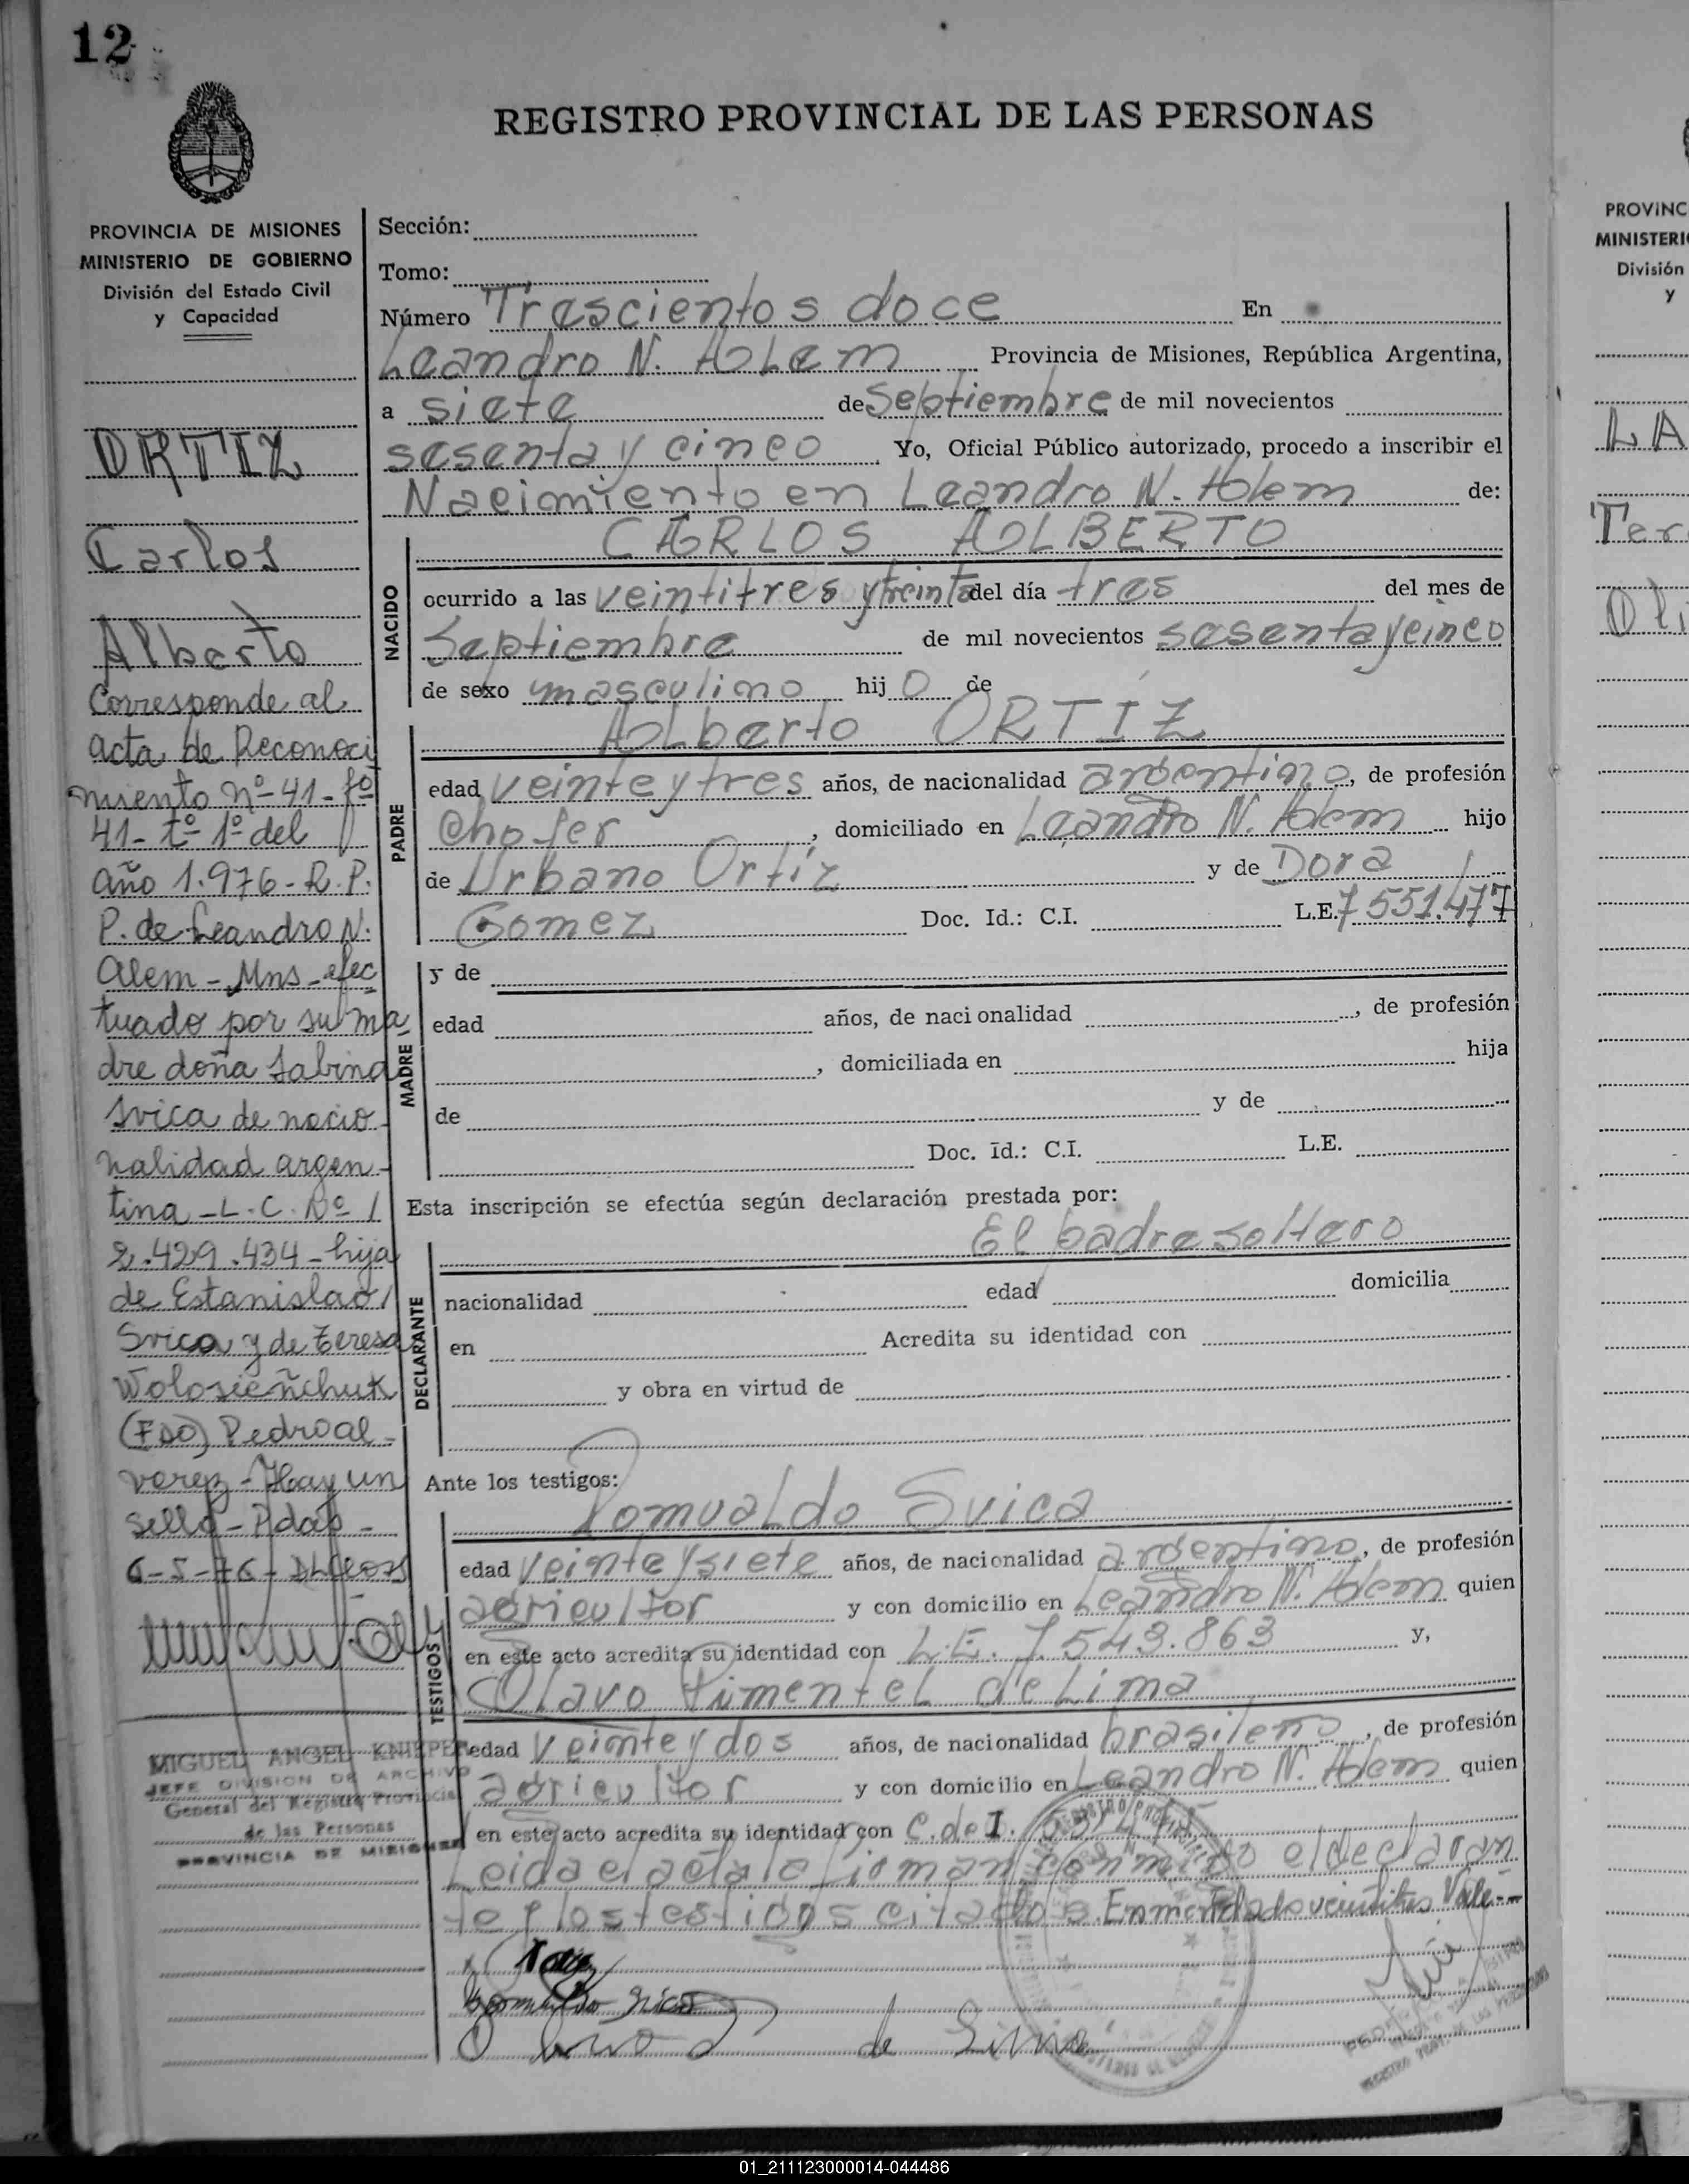 12
REGISTRO PROVINCIAL DE LAS PERSONAS
PROVINCIA DE MISIONES
MINISTERIO DE GOBIERNO
División del Estado Civil
y Capacidad
ORTIZ
Carlos
Alberto
Corresponde al
acta de Reconoci
miento nº-41-fº
41-tº 1º del
año 1.976-R.P.
P. de Leandro N.
Alem-Mns-efec
tuado por su ma
dre doña Sabina
Svica de nacio
nalidad argen-
tina-L.C.Nº/
2.429.434-hija
de Estanislao/
Svica y de Teresa
Wolosieñchuk
(FDO) Pedro Al-
varez-Hay un
sello-Pdas-
6-5-76-
MIGUEL ANGEL KNIEPER
JEFE DIVISION DE ARCHIVO
General del Registro Provincial
de las Personas
PROVINCIA DE MISIONES
Sección:
Tomo:
Número Trescientos doce En
Leandro N. Alem Provincia de Misiones, República Argentina,
a siete de Septiembre de mil novecientos
sesenta y cinco Yo, Oficial Público autorizado, procedo a inscribir el
Nacimiento en Leandro N. Alem de:
NACIDO
CARLOS ALBERTO
ocurrido a las veintitres y treinta del día tres del mes de
Septiembre de mil novecientos sesenta y cinco
de sexo masculino hijo de
PADRE
Alberto ORTIZ
edad veinte y tres años, de nacionalidad argentino, de profesión
Chofer, domiciliado en Leandro N. Alem hijo
de Urbano Ortíz y de Dora
Gomez Doc. Id.: C.I. L.E. 7551.477
MADRE
y de
edad años, de nacionalidad , de profesión
, domiciliada en hija
de y de
Doc. Id.: C.I. L.E.
Esta inscripción se efectúa según declaración prestada por:
DECLARANTE
El padre soltero
nacionalidad edad domicilia
en Acredita su identidad con
y obra en virtud de
Ante los testigos:
TESTIGOS
Romualdo Svica
edad veinte y siete años, de nacionalidad argentino, de profesión
agricultor y con domicilio en Leandro N. Alem quien
en este acto acredita su identidad con L.E. 7.543.863 y,
Olavo Pimentel de Lima
edad veinte y dos años, de nacionalidad brasilero, de profesión
agricultor y con domicilio en Leandro N. Alem quien
en este acto acredita su identidad con C.de I.
Leida el acta la firman conmigo el declaran
te y los testigos citados. Enmendado veintitres Vale--
Romualdo Svica
de Lima
PROVINC
MINISTERI
División
y
LA
Ter
Oli
01_211123000014-044486